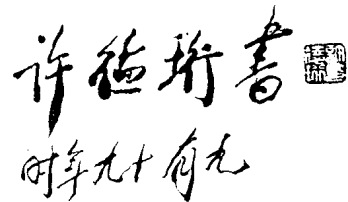 许德珩書
时年九十有